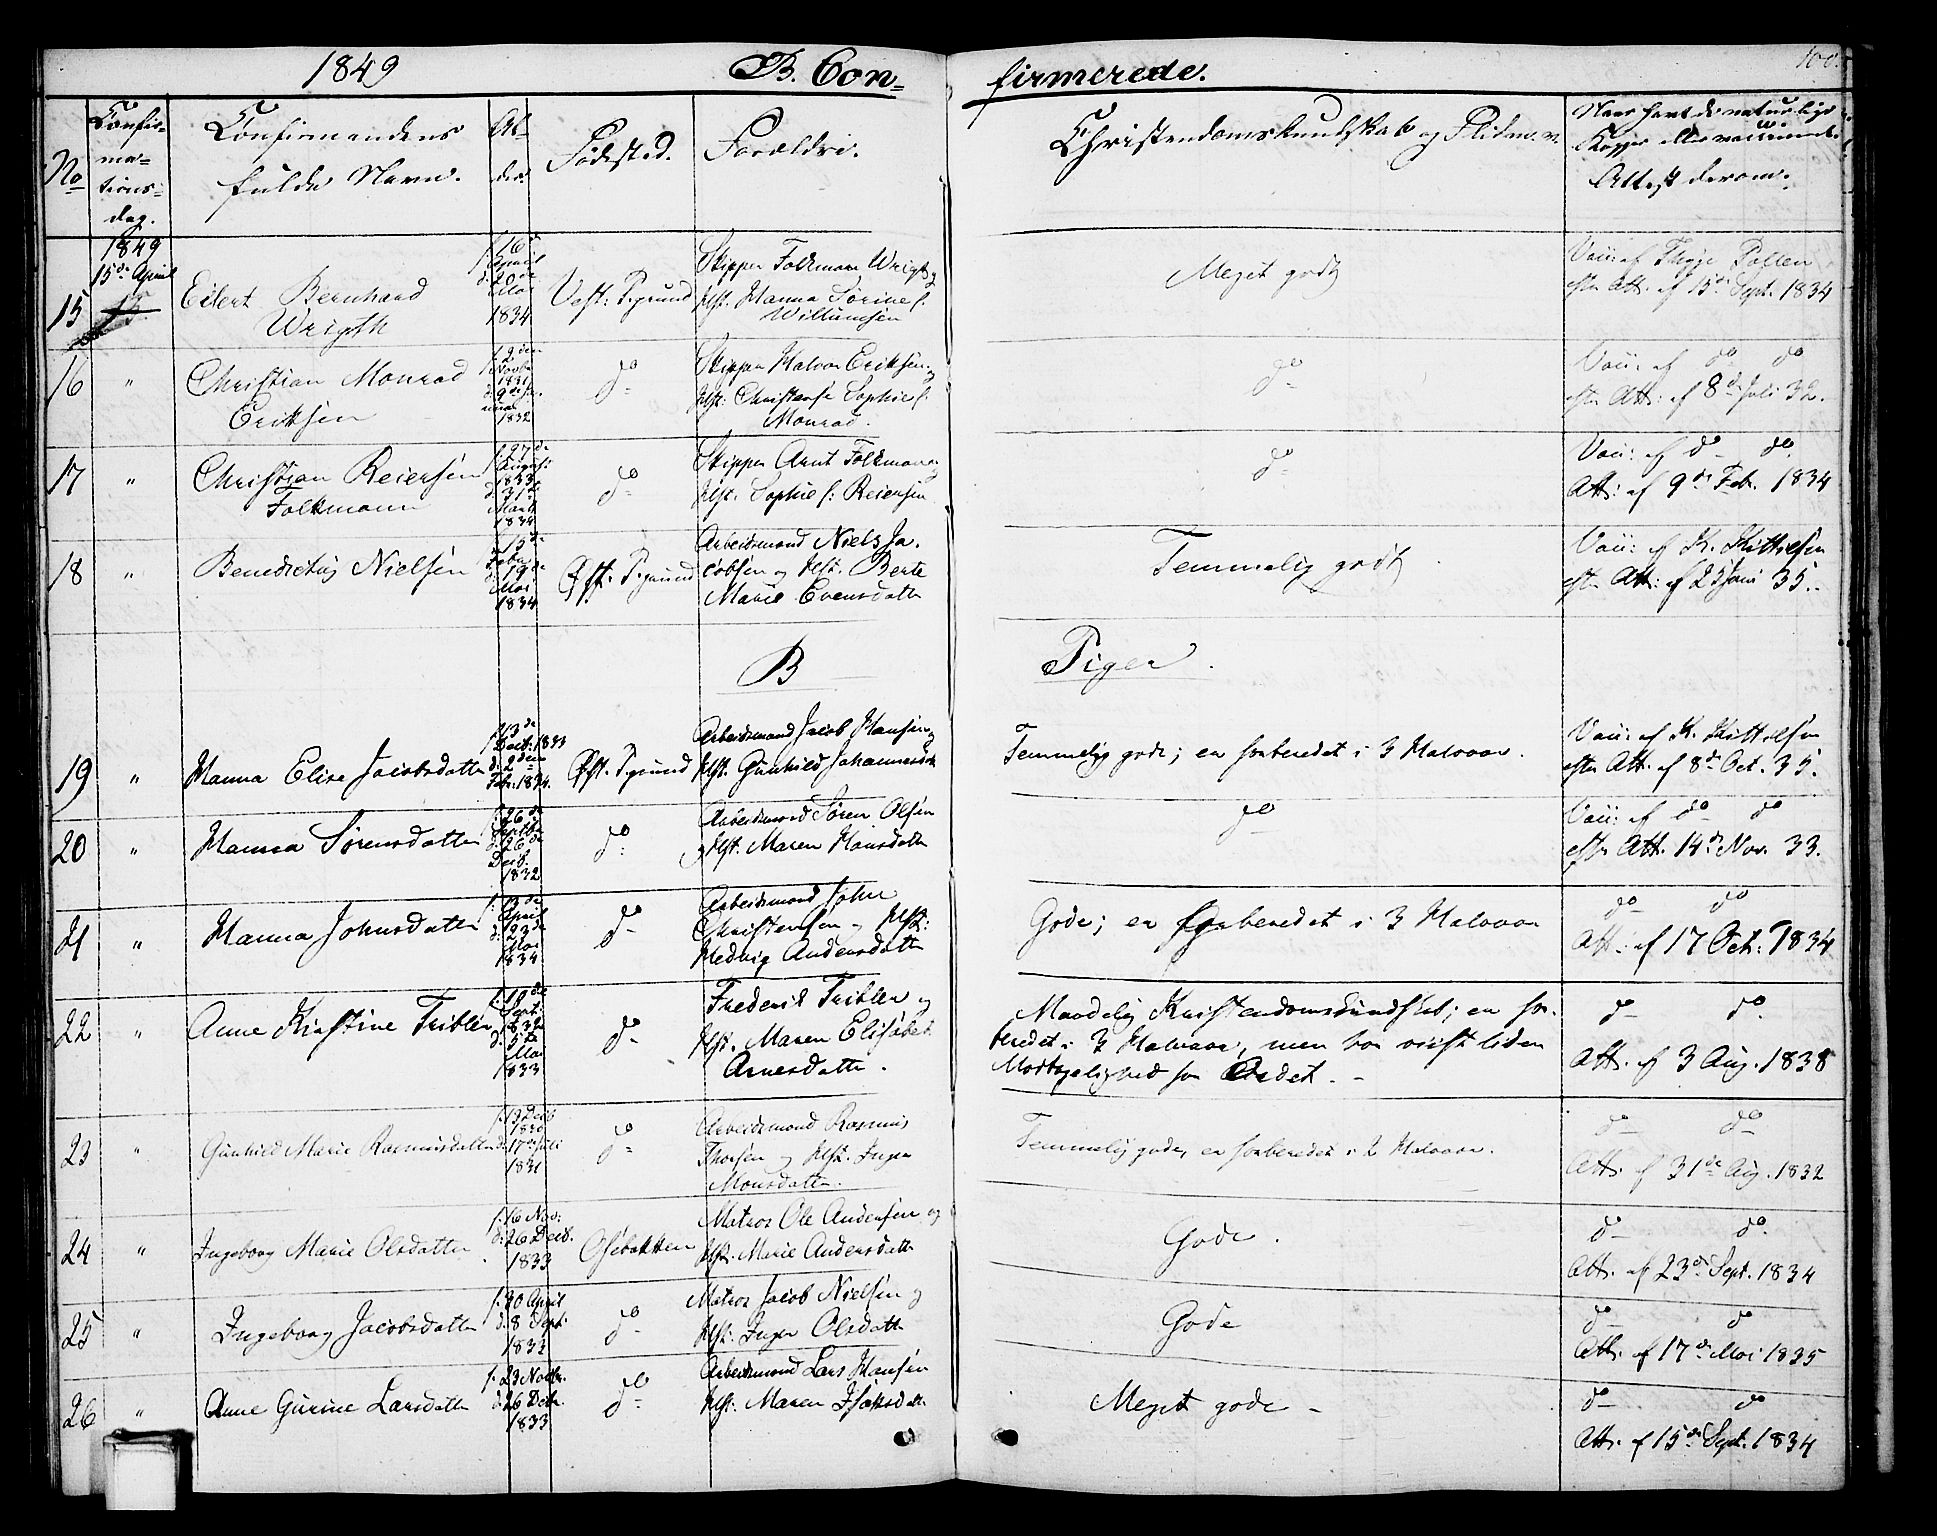 1849 B. Con=
firmerede. 100.
No
Confir=
ma=
tions=
dag.
Confirmandens
fulde Navn.
Al-
der.
Fødested.
Forældre.
Christendomskundskab og Flid m. v.
Naar havt de naturlige
Kopper eller vaccineret
Attest derom.
1849
15de April
15
Eilert Bernhard
Wrigth
f. 16de
April
d. 20de
Mai
1834
Vest: P.grund
Skipper Folkman Wrigt og
Hst. Hanna Sørine f.
Willumsen
Meget godt
Vacc: af Thoje Pollen
efter Att. af 15de Sept. 1834
16
"
Christian Monrad
Eriksen
f. 2den
Novbr
1831
d. 9de Ja-
nuar
1832
do
Skipper Halvor Eriksen og
Hst: Christense Sophie f:
Monrad.
do
Vacc: af do do
efter Att: af 8de Juli 32.
17
"
Christian Reiersen
Folkmann
f. 27de
August
1833
d. 31te
Marts
1834
do
Skipper Arnt Folkman og
Hst. Sophie f: Reiersen
do
Vacc: af do do.
Att: af 9de Feb. 1834
18
"
Benedictus Nielsen
f. 15de
Febr
d. 19de
Mai
1834
Øst: P.grund
Arbeidsmand Niels Ja-
cobsen og Hst. Berte
Marie Evensdatter
Temmelig godt
Vacc: af K. Kittelsen
efter Att: af 25 Juni 35.
B
Piger.
19
"
Hanna Elise Jacobsdatter
f. 13de
Decb: 1833
d. 2den
Febr: 1834.
Øst: P.grund
Arbeidsmand Jacob Hansen og
Hst. Gunhild Johannesdtr
Temmelig gode; er forberedet i 3 Halvaar.
Vacc: af K. Kittelsen
efter Att. af 8de Oct. 35.
20
"
Hanna Sørensdatter
f. 26de
Septbr
d. 26de
Decb.
1832
do
Arbeidsmand Søren Olsen
og Hst. Maren Hansdatter
do
Vacc: af do do
efter Att. 14de Nov. 33.
21
"
Hanna Johnsdatter
f. 13de
April
d. 23de
Mai
1834
do
Arbeidsmand John
Christensen og Hst:
Hedvig Andersdatter
Gode; er forberedet i 3 Halvaar
do do
Att. af 17 Oct: 1834
22
"
Anne Kirstine Tribler
f. 19de
Sept
1832
d. 5te
Mai
1833
do
Frederik Tribler og
Hst. Maren Elisabet
Arnesdatter.
Maadelig Kristendomskundskab; er for-
beredet i 3 Halvaar, men har viist liden
Modtagelighed for Ordet.
do do.
Att. af 3 Aug. 1838
23
"
Gunhild Marie Rasmusdatter
f. 19 Decb
1830
d. 17de Juli
1831
do
Arbeidsmand Rasmus
Thorsen og Hst. Inger
Monsdatter.
Temmelig gode, er forberedet i 2 Halvaar.
do do
Att. af 31te Aug. 1832
24
"
Ingeborg Marie Olsdatter
f. 16 Nov:
d. 26 Decb.
1833
Osebakken
Matros Ole Andersen og
Hst. Marie Andersdatter
Gode.
do do.
Att. af 23de Sept. 1834
25
"
Ingeborg Jacobsdatter
f. 30 April
d. 8 Sept:
1833
do
Matros Jacob Nielsen og
Hst: Inger Olsdatter
Gode
do do
Att. af 17de Mai 1835
26
"
Anne Gurine Larsdatter
f. 23 Novbr.
d. 26 Decbr.
1833
do
Arbeidsmand Lars Hansen
Hst: Maren Isaksdatter
Meget gode
do do
Att. af 15de Sept. 1834